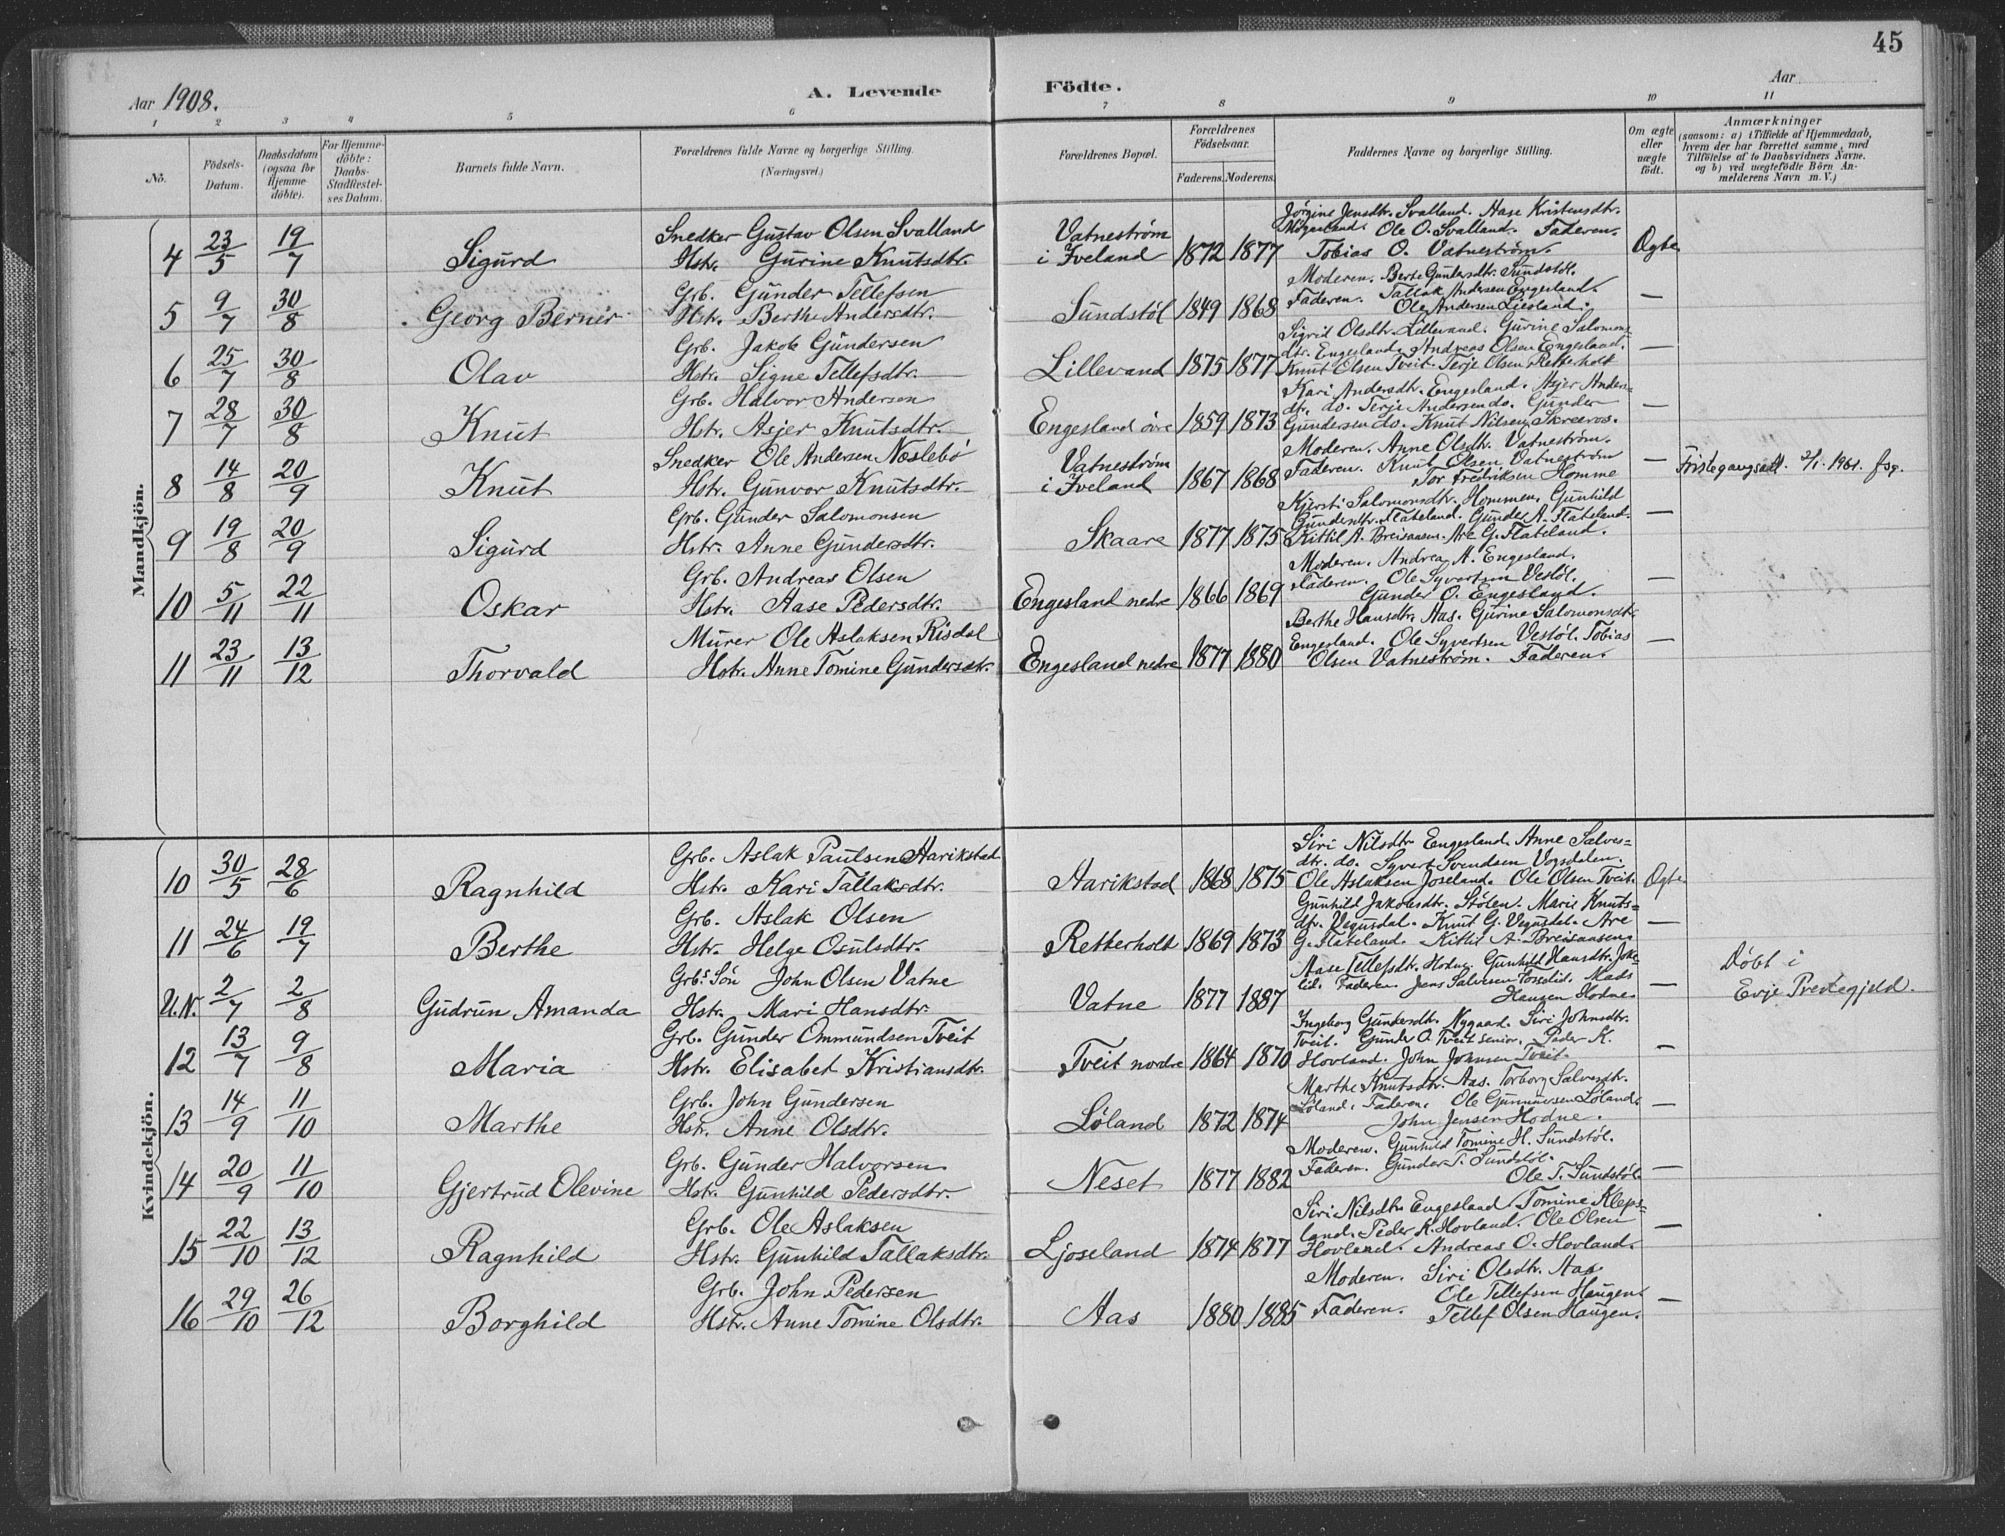 45
Aar 1908.
A. Levende Födte.
Aar
1 2 3 4 5 6 7 8 9 10 11
No.
Födsels-Datum.
Daabsdatum (ogsaa for Hjemmedöbte).
For Hjemmedöbte: Daabs-Stadfæstelses Datum.
Barnets fulde Navn.
Forældrenes fulde Navne og borgerlige Stilling. (Næringsvei.)
Forældrenes Bopæl.
Forældrenes Födselsaar.
Faderens. Moderens.
Faddernes Navne og borgerlige Stilling.
Om ægte eller uægte födt.
Anmærkninger
(saasom: a) i Tilfælde af Hjemmedaab, hvem der har forrettet samme, med Tilföielse af to Daabsvidners Navne, og b) ved uægtefödte Börn Anmelderens Navn m. V.)
Mandkjön.
4 23/5 19/7 Sigurd
Snedker Gustav Olsen Svalland
Hstr. Gurine Knutsdtr.
Vatneström
i Iveland 1872 1877
Jörgine Jensdtr. Svalland. Aase Kristensdtr.
Ole O. Svalland. Faderen.
Tobias O. Vatneström.
Ægte
5 9/7 30/8 Georg Bernir
Grb. Gunder Tellefsen
Hstr. Berthe Andersdtr.
Sundstöl 1849 1868
Moderen. Berte Gundersdtr. Sundstöl.
Faderen. Tallak Andersen Engesland.
Ole Andersen Liesland.
—
6 25/7 30/8 Olav
Grb. Jakob Gundersen
Hstr. Signe Tellefsdtr.
Lillevand 1875 1877
Sigrid Olsdtr. Lillevand. Gurine Salomons-
dtr. Engesland. Andreas Olsen Engesland.
Knut Olsen Tveit. Terje Olsen Retterholt
—
7 28/7 30/8 Knut
Grb. Halvor Andersen
Hstr. Asjer Knutsdtr.
Engesland övre 1859 1873
Kari Andersdtr. Engesland. Asjer Anders-
dtr. do. Terje Andersen do. Gunder
Gundersen do. Knut Nilsen Skreros.
—
8 14/8 20/9 Knut
Snedker Ole Andersen Neslebö
Hstr. Gunvor Knutsdtr.
Vatneström
i Iveland 1867 1868
Moderen. Anne Olsdtr. Vatneström.
Faderen. Knut Olsen Vatneström
Tor Fredriksen Homme
—
Fristegangsatt. 2/1. 1961. fsg.
9 19/8 20/9 Sigurd
Grb. Gunder Salomonsen
Hstr. Anne Gundersdtr.
Skaare 1877 1875
Kjersti Salomonsdtr. Hommen. Gunhild
Gundersdtr. Flateland. Gunder A. Flateland.
Kittil A. Breisaasen. Are G. Flateland.
—
10 5/11 22/11 Oskar
Grb. Andreas Olsen
Hstr. Aase Pedersdtr.
Engesland nedre 1866 1869
Moderen. Andrea A. Engesland.
Faderen. Ole Syvertsen Vestöl.
Gunder O. Engesland.
—
11 23/11 13/12 Thorvald
Murer Ole Aslaksen Risdal
Hstr. Anne Tomine Gundersdtr.
Engesland nedre 1877 1880
Berthe Hansdtr. Aas. Gurine Salomonsdtr.
Engesland. Ole Syvertsen Vestöl. Tobias
Olsen Vatneström. Faderen.
—
Kvindekjön.
10 30/5 28/6 Ragnhild
Grb. Aslak Paulsen Aarikstad
Hstr. Kari Tallaksdtr.
Aarikstad 1868 1875
Siri Nilsdtr Engesland. Anne Salves-
dtr. do. Syvert Svendsen Vegsdalen.
Ole Aslaksen Joseland. Ole Olsen Tveit.
Ægte
11 24/6 19/7 Berthe
Grb. Aslak Olsen
Hstr. Helge Osulsdtr.
Retterholt 1869 1873
Gunhild Jakobsdtr. Stölen. Marie Knuts-
dtr. Vegusdal. Knut G. Vegusdal. Are
G. Flateland. Kittil A. Breisaasen.
—
U.N. 2/7 2/8 Gudrun Amanda
Grb.s Sön John Olsen Vatne
Hstr. Mari Hansdtr.
Vatne 1877 1887
Aase Tellefsdtr. Hodne. Gunhild Hansdtr. Jok-
lid. Faderen. Jens Salvesen Fosselid. Mads
Hansen Hodne.
—
Döbt i
Evje Prestegjeld.
12 13/7 9/8 Maria
Grb. Gunder Ommundsen Tveit
Hstr. Elisabet Kristiansdtr.
Tveit nordre 1864 1870
Ingeborg Gundersdtr. Nygaard. Siri Johnsdtr.
Tveit. Gunder O. Tveit senior. Peder K.
Hovland. John Johnsen Tveit.
—
13 14/9 11/10 Marthe
Grb. John Gundersen
Hstr. Anne Olsdtr.
Löland 1872 1874
Marthe Knutsdtr. Aas. Torborg Salvesdtr.
Löland. Faderen. Ole Gunnarsen Löland.
John Jensen Hodne.
—
14 20/9 11/10 Gjertrud Olevine
Grb. Gunder Halvorsen
Hstr. Gunhild Pedersdtr.
Neset 1877 1882
Moderen. Gunhild Tomine H. Sundstöl.
Faderen. Gunder T. Sundstöl.
Ole T. Sundstöl.
—
15 22/10 13/12 Ragnhild
Grb. Ole Aslaksen
Hstr. Gunhild Tallaksdtr.
Ljoseland 1874 1877
Siri Nilsdtr. Engesland. Tomine Kleps-
land. Peder K. Hovland. Ole Olsen
Hovland. Andreas O. Hovland.
—
16 29/10 26/12 Borghild
Grb. John Pedersen
Hstr. Anne Tomine Olsdtr.
Aas 1880 1885
Moderen. Siri Olsdtr. Aas.
Ole Tellefsen Haugen.
Faderen. Tellef Olsen Haugen.
—